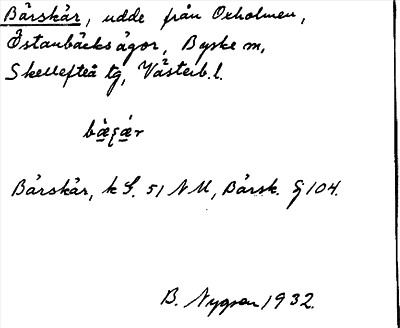 Bårskär, udde från Oxholmen,
Östanbäcks ägor, Byske m,
Skellefteå tg, Västerb. l.
Bårskär, k S. 51 NU, Bårsk. G 104.
B. Nygren 1932.